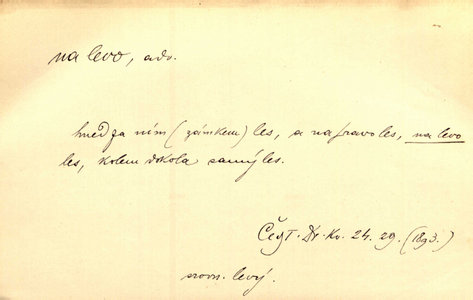 na levo, adv.
hned za ním (zámkem) les, a na pravo les, na levo
les, kolem dokola samý les.
Čech. Dr. Kv. 24. 29. (1893.)
srovn. levý.